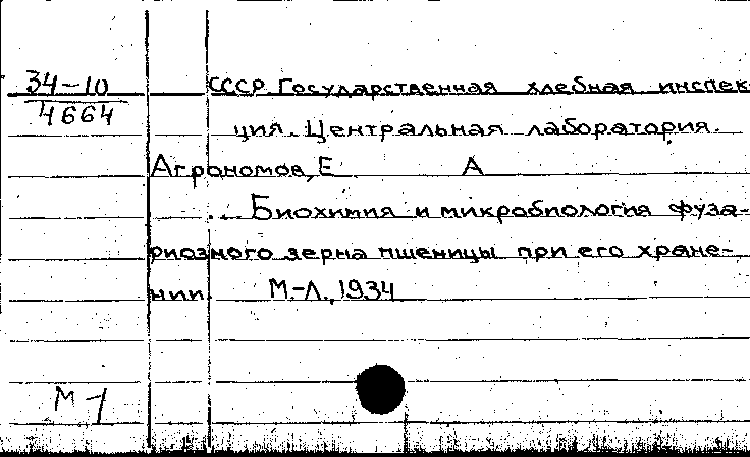 34-10
4664
СССР. Государственная хлебная инспек-
ция. Центральная лаборатория.
Агрономов, Е А
... Биохимия и микробиология фуза-
риозного зерна пшеницы при его хране-
нии. М.-Л., 1934
М 1